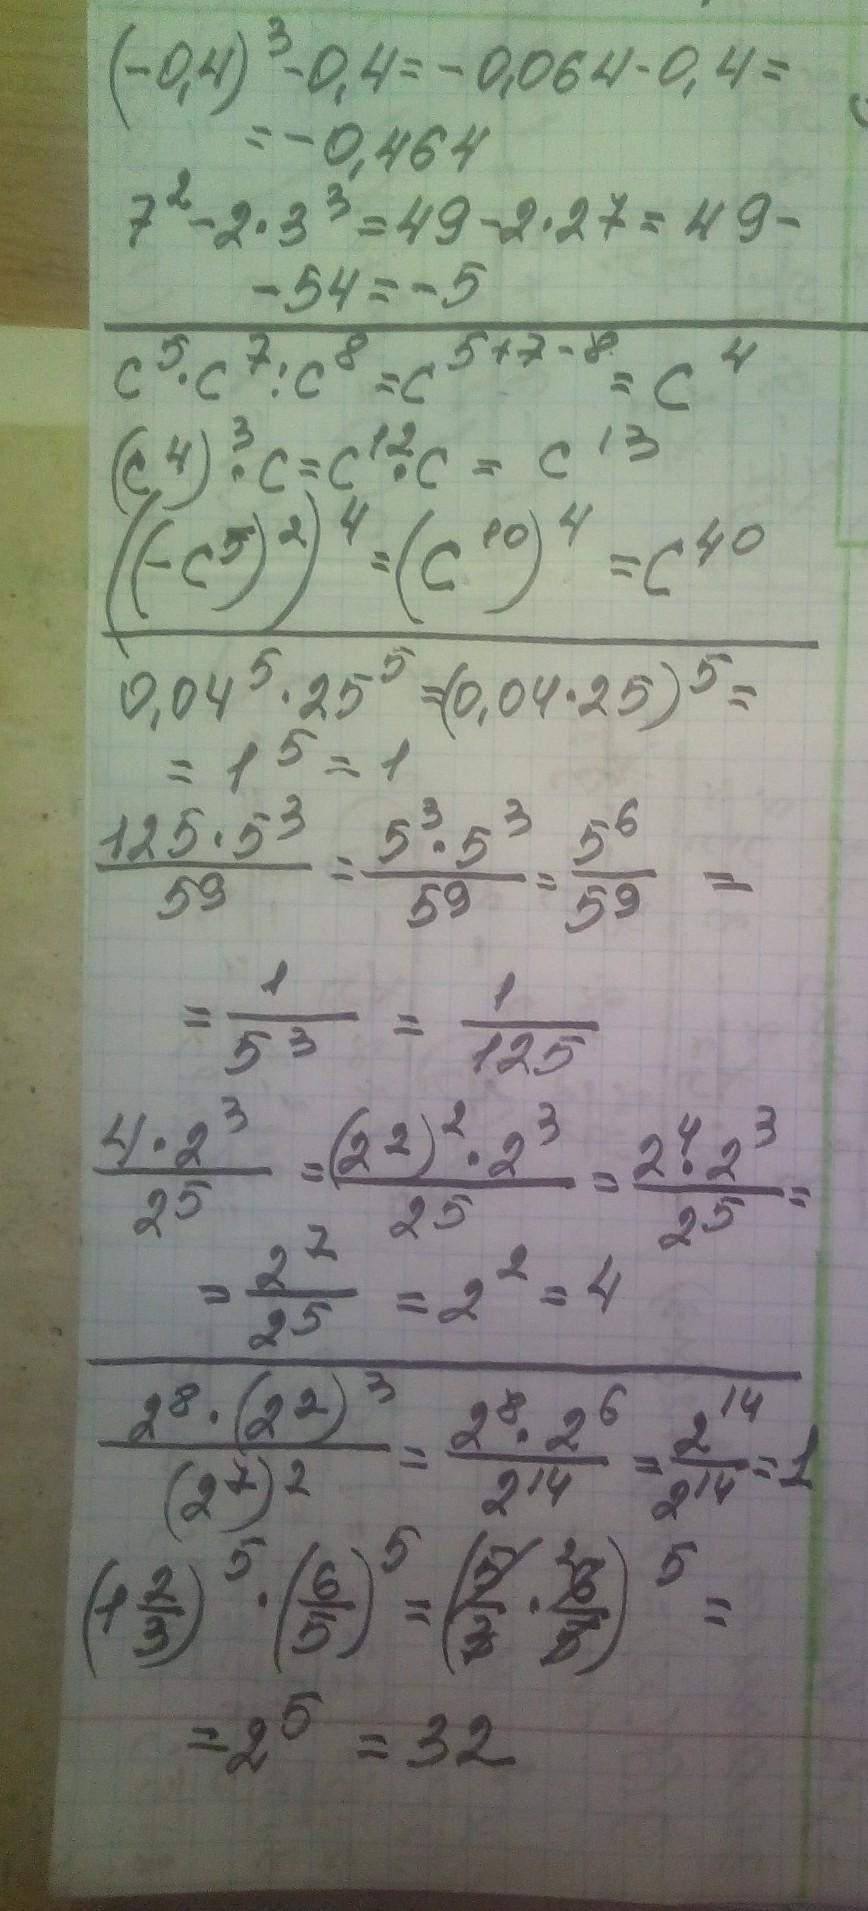 (-0,4)³-0,4=-0,064-0,4=
=-0,464
7²-2·3³=49-2·27=49-
-54=-5
c⁵·c⁷:c⁸=c⁵⁺⁷⁻⁸=c⁴
(c⁴)³·c=c¹²·c=c¹³
((-c⁵)²)⁴=(c¹⁰)⁴=c⁴⁰
0,04⁵·25⁵=(0,04·25)⁵=
=1⁵=1
125·5³/5⁹=5³·5³/5⁹=5⁶/5⁹=
=1/5³=1/125
4·2³/2⁵=(2²)²·2³/2⁵=2⁴·2³/2⁵=
=2⁷/2⁵=2²=4
2⁸·(2²)³/(2⁷)²=2⁸·2⁶/2¹⁴=2¹⁴/2¹⁴=1
(1 2/3)⁵·(6/5)⁵=(5/3·²6/5)⁵=
=2⁵=32